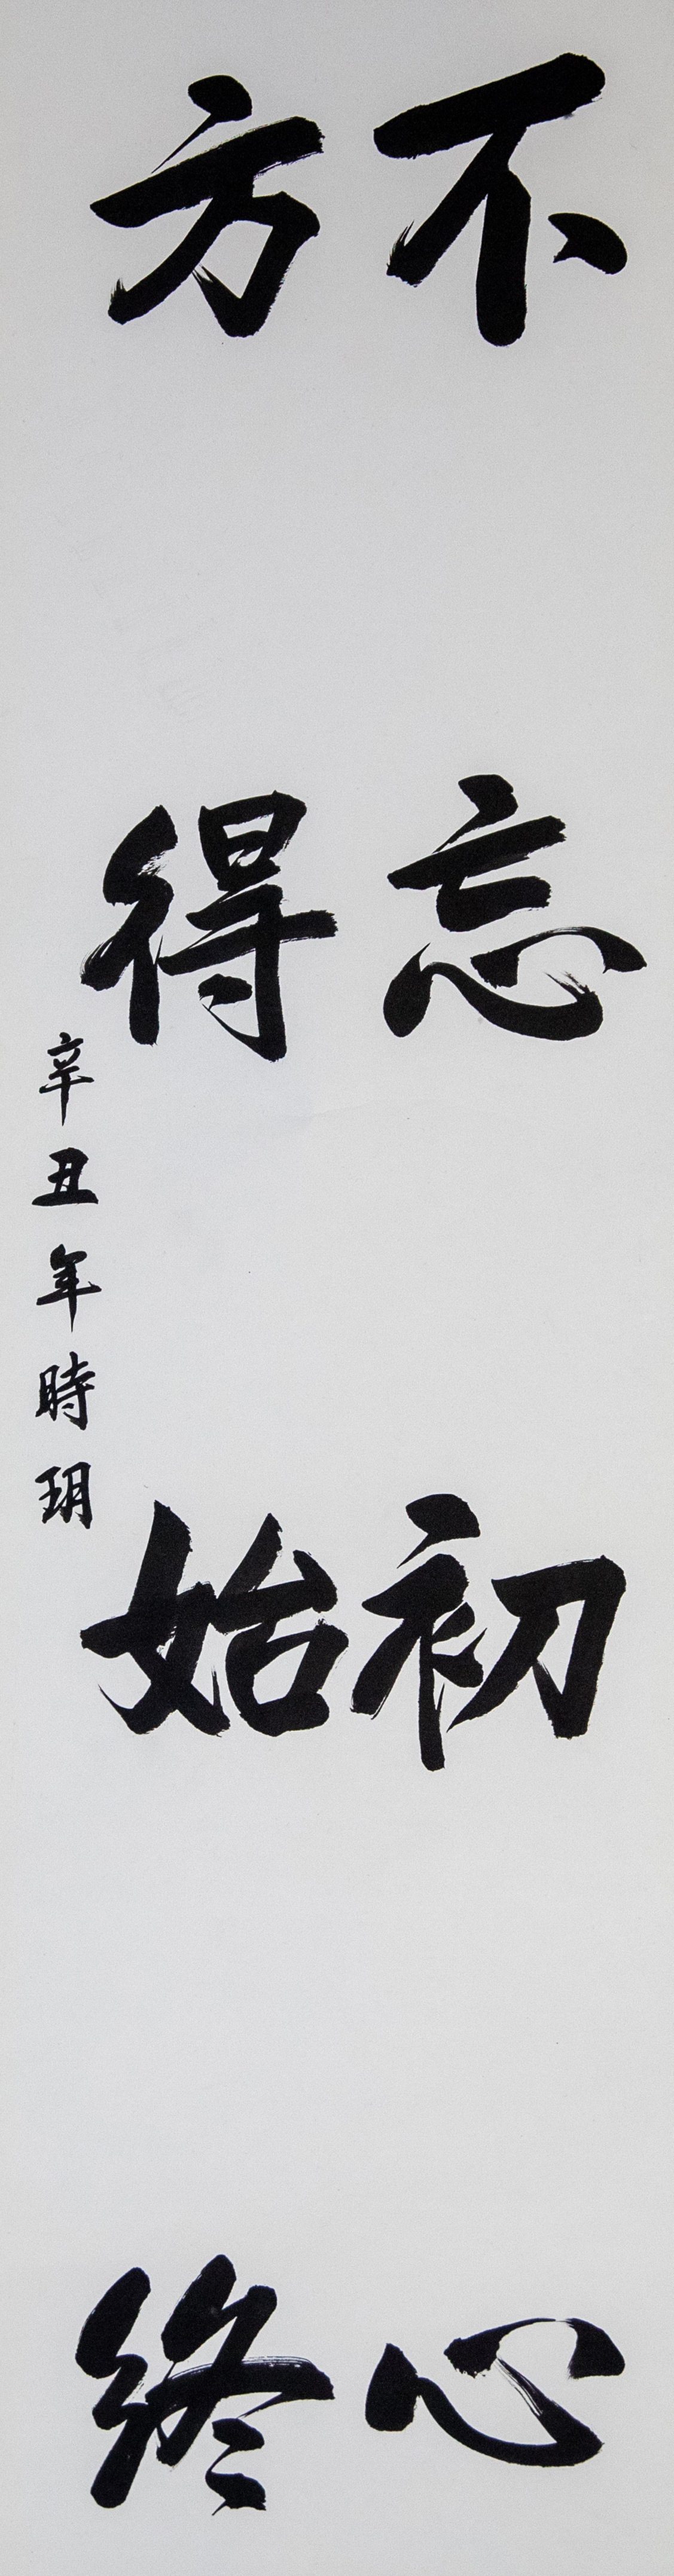 不忘初心
方得始終
辛丑年時玥